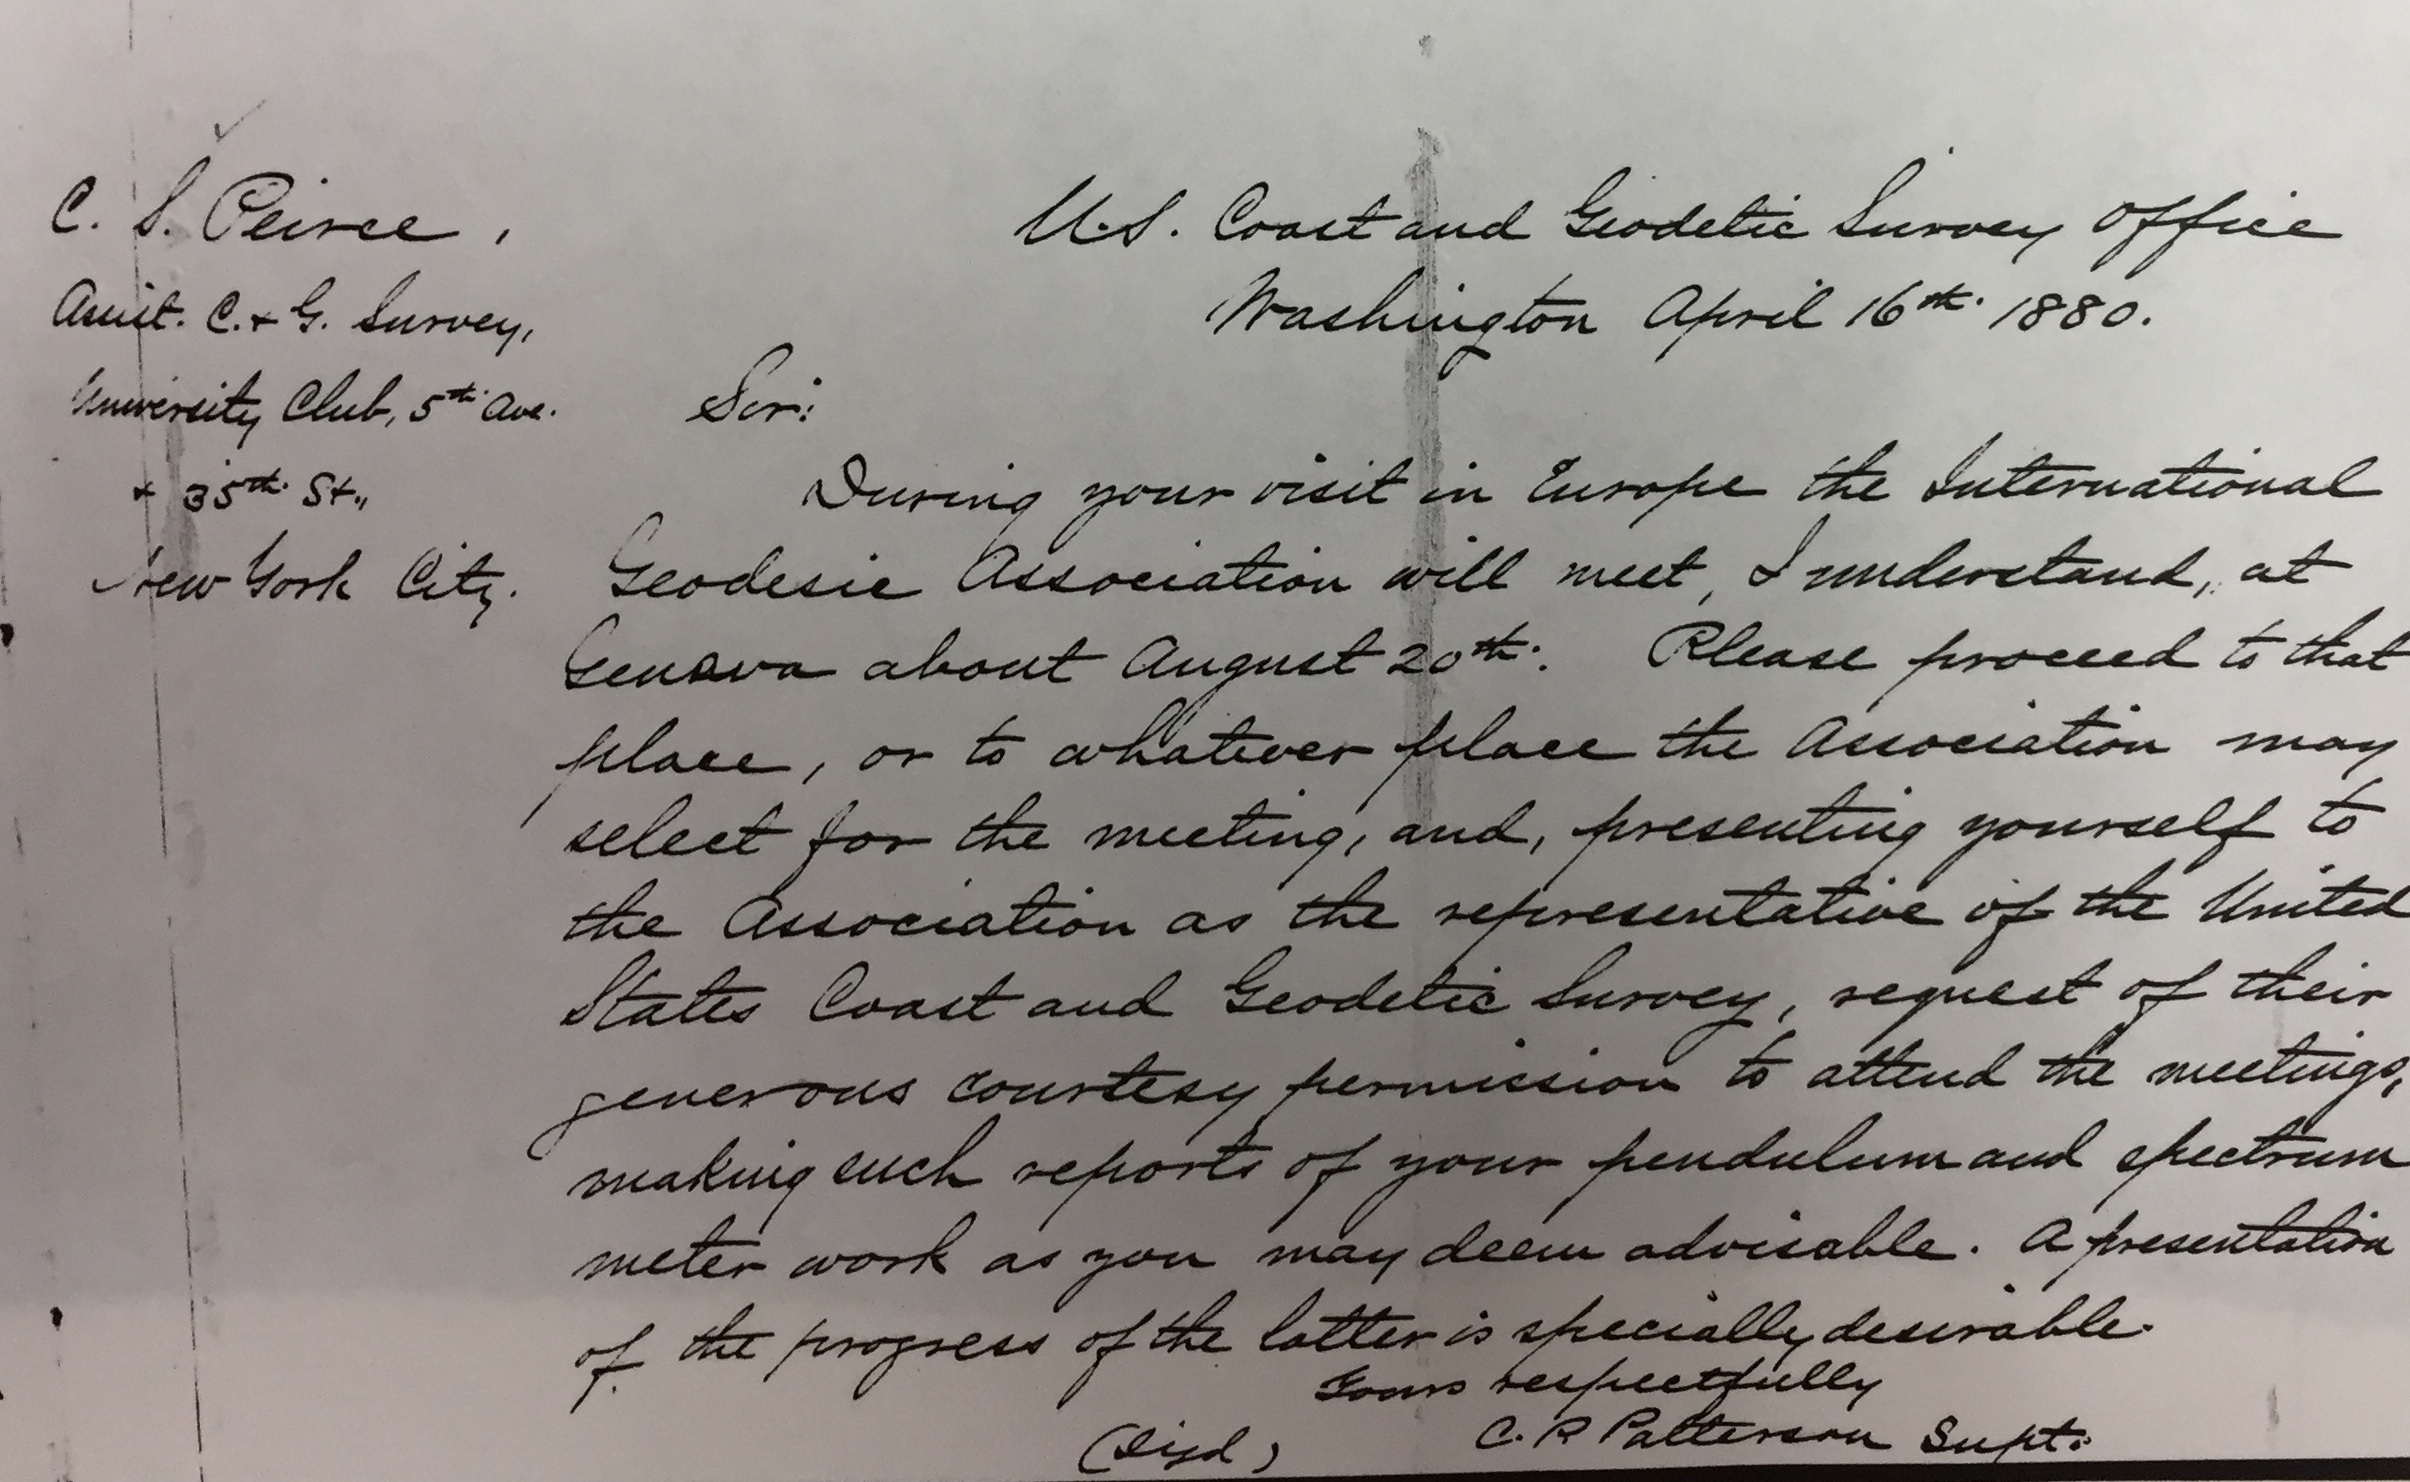 C. S. Peirce,
Assist. C. & G. Survey,
University Club, 5th. Ave.
& 35th. St.,
New York City.
U.S. Coast and Geodetic Survey Office
Washington April 16th. 1880.
Sir:
During your visit in Europe the International
Geodesic Association will meet, I understand, at
Geneva about August 20th. Please proceed to that
place, or to whatever place the Association may
select for the meeting, and, presenting yourself to
the Association as the representative of the United
States Coast and Geodetic Survey, request of their
generous courtesy permission to attend the meetings,
making such reports of your pendulum and spectrum
meter work as you may deem advisable. A presentation
of the progress of the latter is specially desirable.
Yours respectfully
(Sigd) C. P. Patterson Supt.